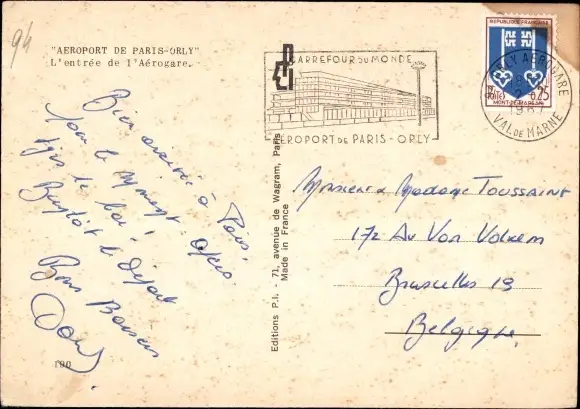 94
"AEROPORT DE PARIS-ORLY"
L'entrée de l'Aérogare.
Bien arrivée à Paris.
Pour le moment, après
Bientôt le départ
Bons Baisers
190
Editions P.I. - 71, avenue de Wagram, Paris
Made in France
CARREFOUR DU MONDE
AEROPORT DE PARIS - ORLY
REPUBLIQUE FRANÇAISE
0,25
MONT-DE-MARSAN
ORLY AEROGARE
1967
VAL DE MARNE
Monsieur & Madame TOUSSAINT
172 Av Von Volxem
Bruxelles 19
Belgique